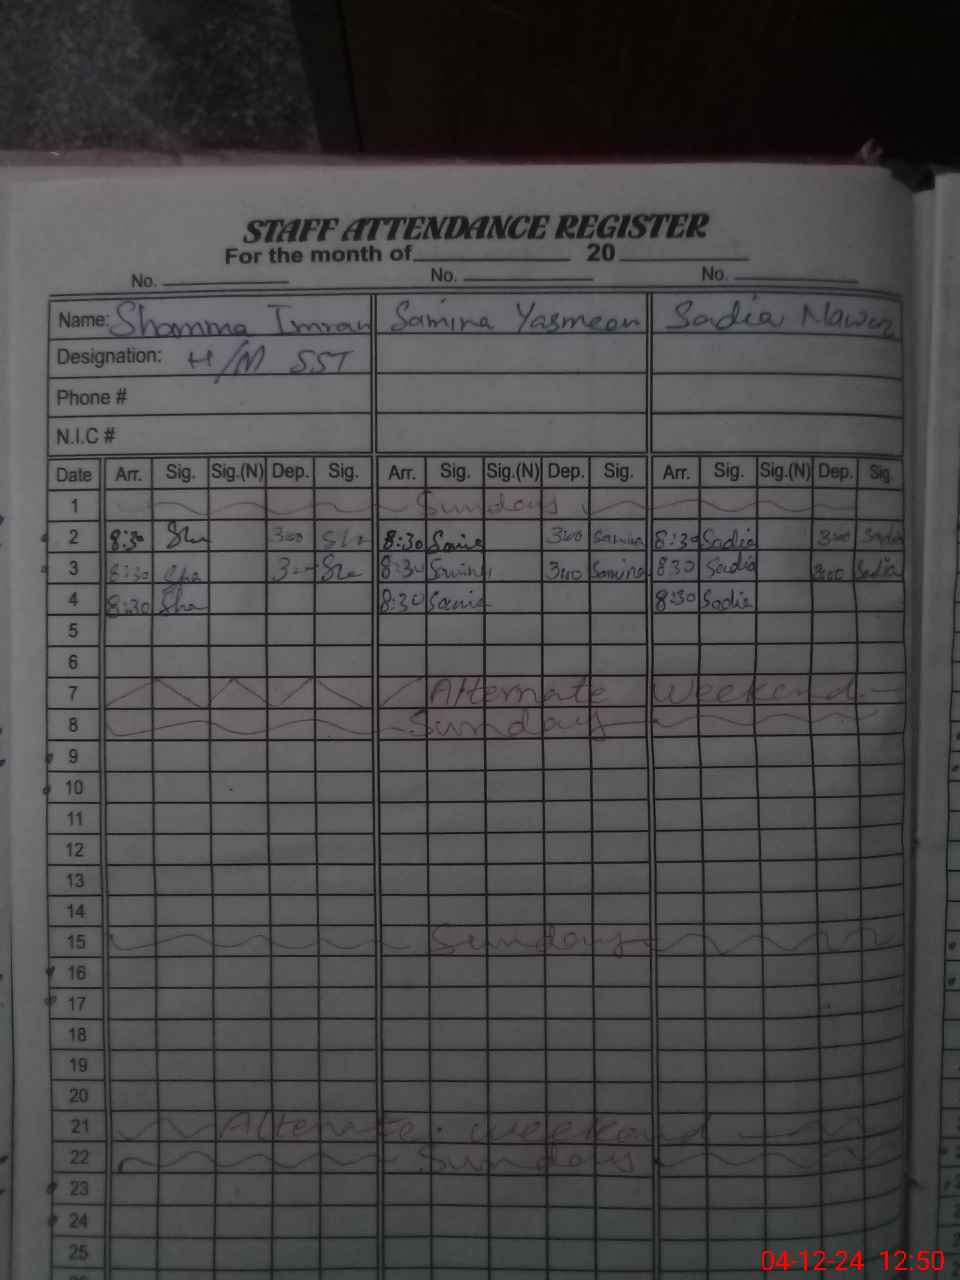 STAFF ATTENDANCE REGISTER
For the month of 20
No. No. No.
Name: Shamma Imran Samina Yasmeen Sadia Nawaz
Designation: H/M SST
Phone #
N.I.C #
Date Arr. Sig. Sig.(N) Dep. Sig. Arr. Sig. Sig.(N) Dep. Sig. Arr. Sig. Sig.(N) Dep. Sig.
1 Sunday
2 8:30 Sha 3:00 Sha 8:30 Samina 3:00 Samina 8:30 Sadia 3:00 Sadia
3 8:30 Sha 3:00 Sha 8:30 Samina 3:00 Samina 8:30 Sadia 3:00 Sadia
4 8:30 Sha 8:30 Samina 8:30 Sadia
5
6
7 Alternate Weekend
8 Sunday
9
10
11
12
13
14
15 Sunday
16
17
18
19
20
21 Alternate weekend
22 Sunday
23
24
25
04-12-24 12:50